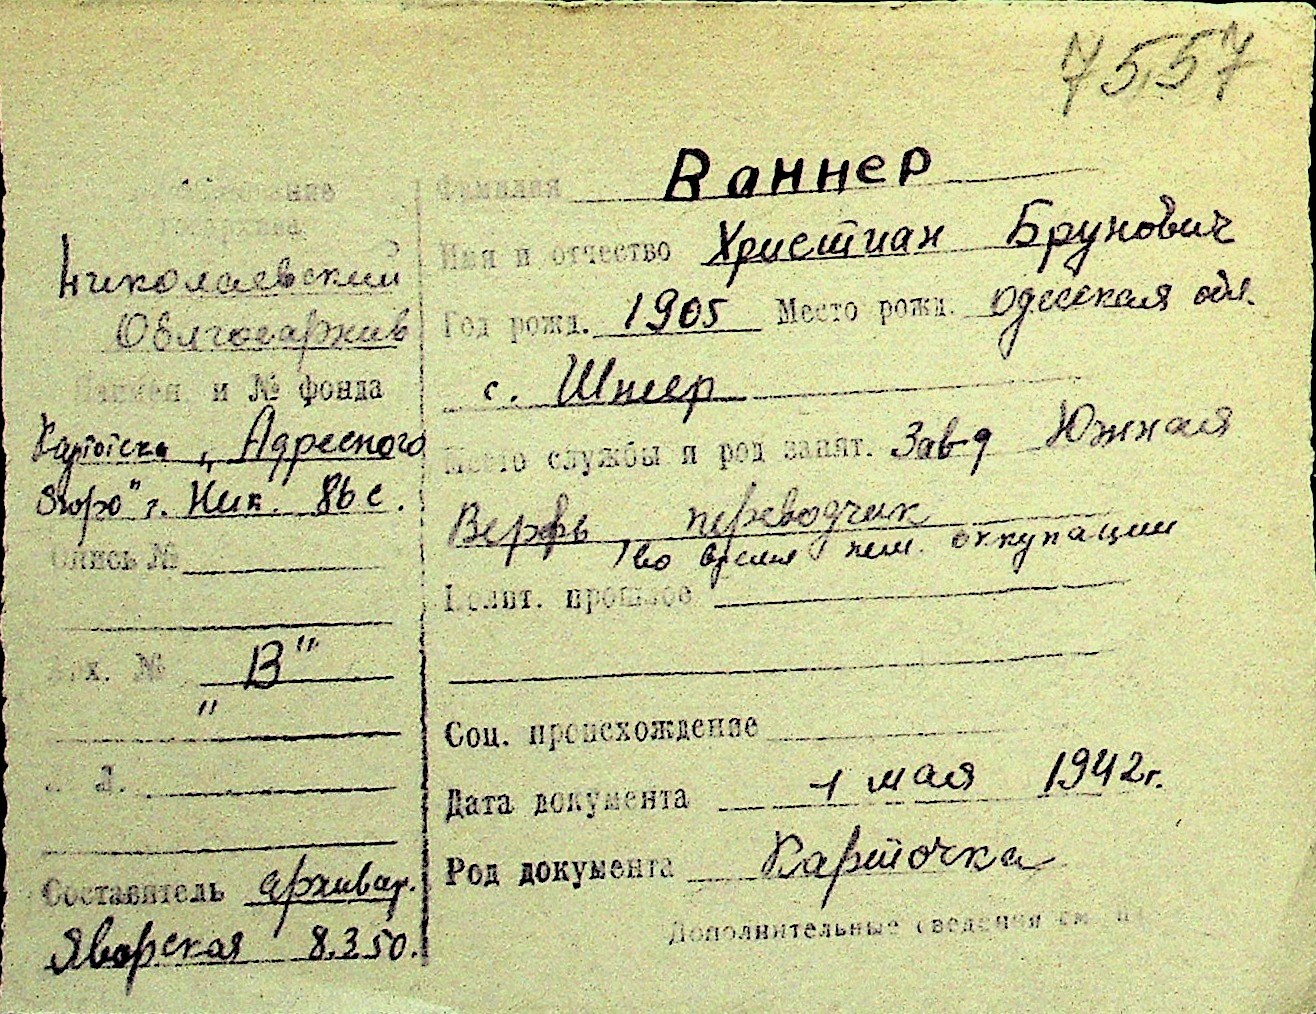 75,57
госархива
Николаевский
Облгосархив
и № фонда
Картотека „Адресного
бюро" г. Ник. 86 с.
Опись №
Вх. №
„В"
Л. Д.
Составитель архивар.
Яворская 8.3.50.
Фамилия Ваннер
Имя и отчество Христиан Брунович
Год рожд. 1905 Место рожд. Одесская обл.
с. Шпеер
Место службы и род занят. Зав-д Южная
Верфь, переводчик
во время нем. оккупации
Полит. прошлое
Соц. происхождение
Дата документа 1 мая 1942 г.
Род документа Карточка
Дополнительные сведения см.